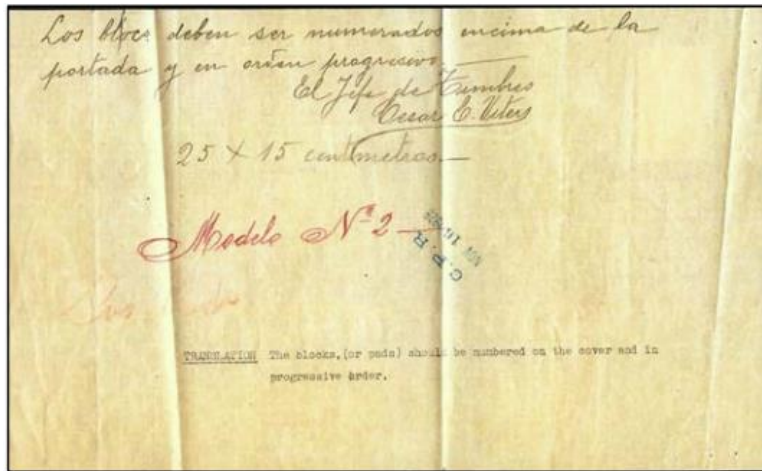 Los blocs deben ser numerados encima de la
portada y en orden progresivo.
El Jefe de Timbres
Cesar E.
25 X 15 centimetros.
Modelo Nº 2
C. P. R
NOV 10
TRANSLATION The blocks, (or pads) should be numbered on the cover and in
progressive order.